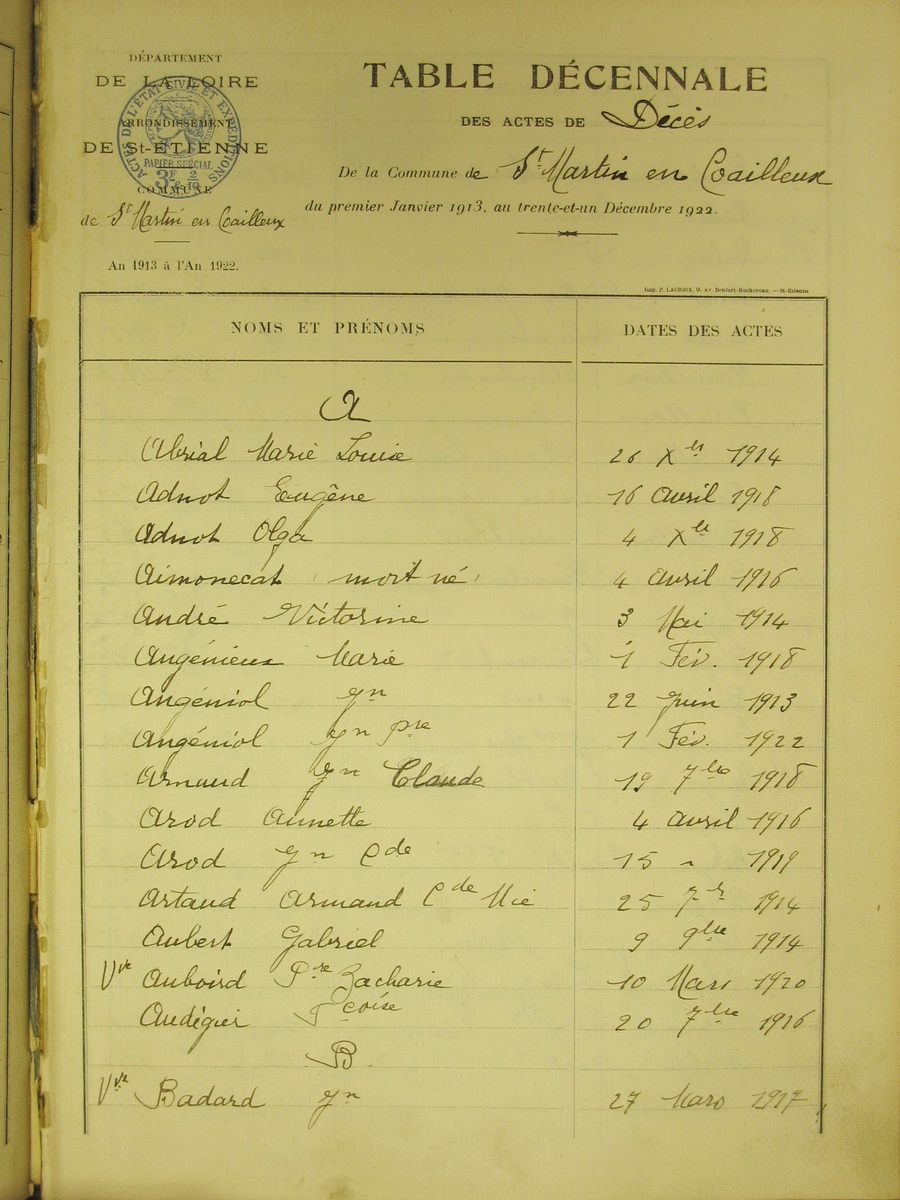 DÉPARTEMENT
DE LA LOIRE
ARRONDISSEMENT
DE St-ETIENNE
COMMUNE
de St Martin en Coailleux
An 1913 à l'An 1922.
ACTES DE L'ÉTAT CIVIL ET EXPÉDITIONS
PAPIER SPÉCIAL
3F
TABLE DÉCENNALE
DES ACTES DE Décès
De la Commune de St Martin en Coailleux
du premier Janvier 1913, au trente-et-un Décembre 1922.
Imp. P. LACROIX, 9, Av. Denfert-Rochereau. — St-Etienne
NOMS ET PRÉNOMS DATES DES ACTES
A
Abrial Marie Louise 26 Xbre 1914
Adnot Eugêne 16 Avril 1918
Adnot Olga 4 Xbre 1918
Aimonecat (mort né) 4 Avril 1916
André Victorine 3 Mai 1914
Angénieux Marie 1 Fév. 1918
Angéniol Jn 22 Juin 1913
Angéniol Jn Pre 1 Fév. 1922
Arnaud Jn Claude 19 7bre 1918
Arod Annette 4 Avril 1916
Arod Jn Cde 15 " 1919
Artaud Armand Cde Mie 25 1914
Aubert Gabriel 9 9bre 1914
Vve Auboird Pre Zacharie 10 Mars 1920
Audigier Fcoise 20 7bre 1916
B
Vve Badard Jn 27 Mars 1917